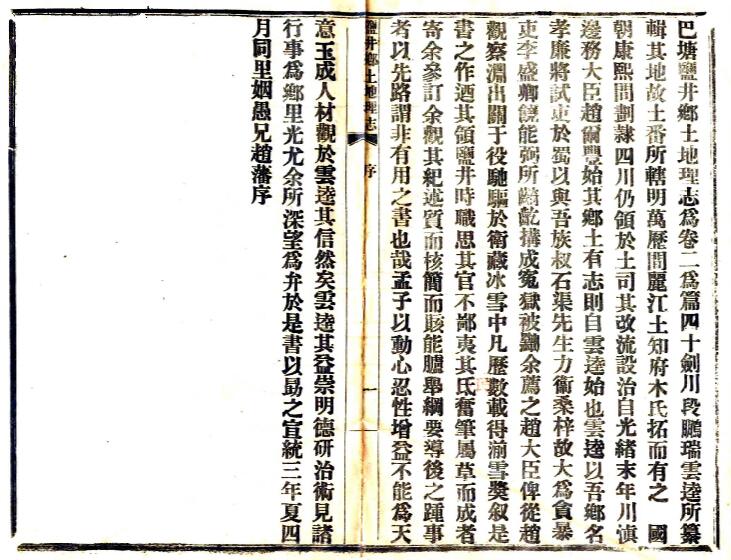 巴塘鹽井鄉土地理志爲卷二爲篇四十劍川段鵬瑞雲逵所纂
輯其地故土番所轄明萬歷間麗江土知府木氏拓而有之　國
朝康熙間劃隸四川仍領於土司其改流設治自光緒末年川滇
邊務大臣趙爾豐始其鄉土有志則自雲逵始也雲逵以吾鄉名
孝廉將試吏於蜀以與吾族叔石渠先生力衞桑梓故大爲貪暴
吏李盛卿饒能弼所齮齕搆成冤獄被黜余薦之趙大臣俾從趙
觀察淵出關于役馳驅於衞藏冰雪中凡歷數載得湔雪奬叙是
書之作迺其領鹽井時職思其官不鄙夷其氏奮筆屬草而成者
寄余參訂余觀其紀述質而核簡而賅能臚舉綱要導後之踵事
者以先路謂非有用之書也哉孟子以動心忍性增益不能爲天
鹽井鄉土地理志　序　一
意玉成人材觀於雲逵其信然矣雲逵其益崇明德研治術見諸
行事爲鄉里光尤余所深望爲弁於是書以勗之宣統三年夏四
月同里姻愚兄趙藩序